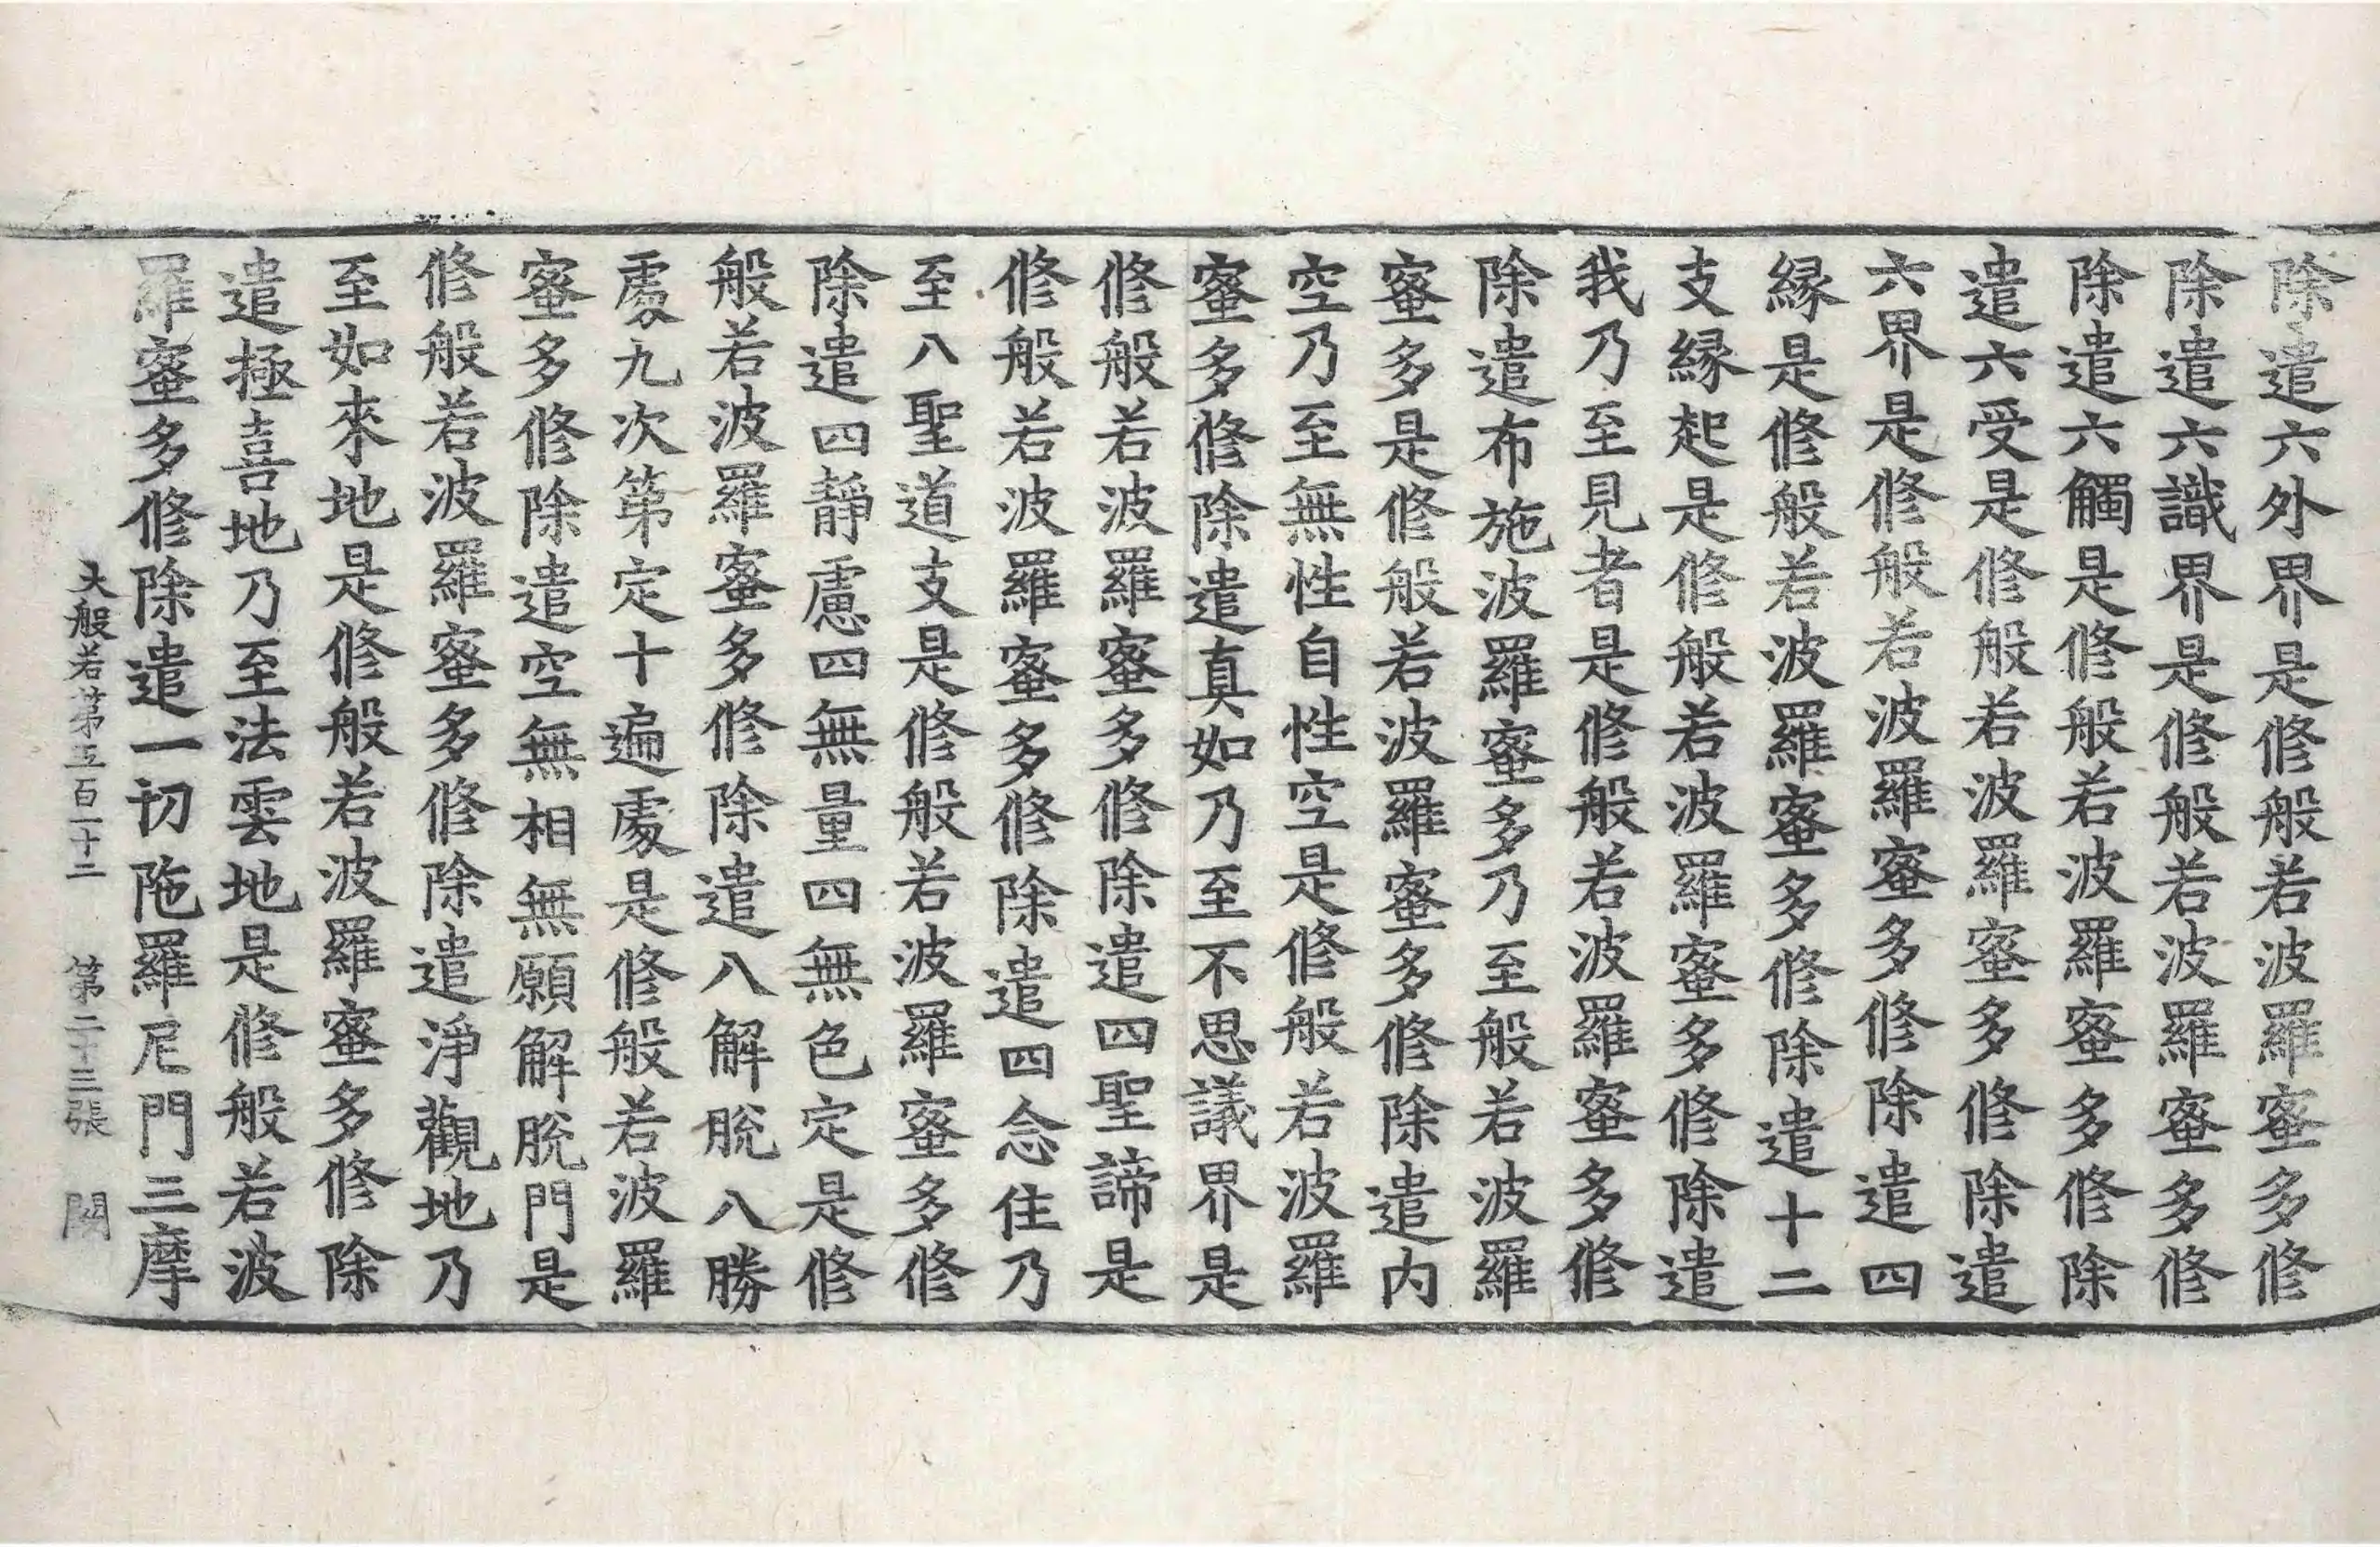 除遣六外界是修般若波羅蜜多修
除遣六識界是修般若波羅蜜多修
除遣六觸是修般若波羅蜜多修除
遣六受是修般若波羅蜜多修除遣
六界是修般若波羅蜜多修除遣四
縁是修般若波羅蜜多修除遣十二
支縁起是修般若波羅蜜多修除遣
我乃至見者是修般若波羅蜜多修
除遣布施波羅蜜多乃至般若波羅
蜜多是修般若波羅蜜多修除遣内
空乃至無性自性空是修般若波羅
蜜多修除遣真如乃至不思議界是
修般若波羅蜜多修除遣四聖諦是
修般若波羅蜜多修除遣四念住乃
至八聖道支是修般若波羅蜜多修
除遣四靜慮四無量四無色定是修
般若波羅蜜多修除遣八解脫八勝
處九次第定十遍處是修般若波羅
蜜多修除遣空無相無願解脫門是
修般若波羅蜜多修除遣淨觀地乃
至如來地是修般若波羅蜜多修除
遣極喜地乃至法雲地是修般若波
羅蜜多修除遣一切陁羅尼門三摩
大般若第五百一十二 第二十三張